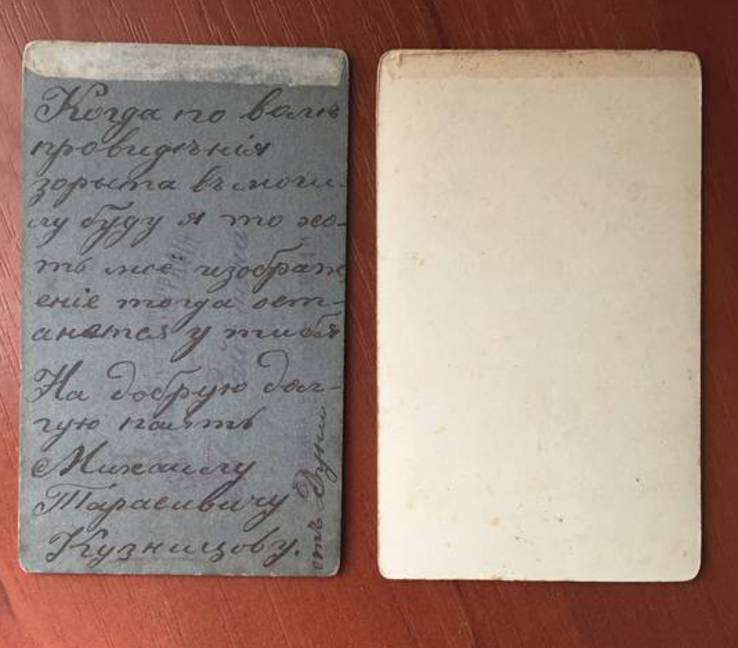 Когда по воле
провидѣнія
зорыта въ моги-
лу буду я то хо-
ть мое изображ
еніе тогда ост-
анется у тибя
На добрую дол-
гую память
Михаилу
Тарасивичу
Кузницову.
отъ Дуни